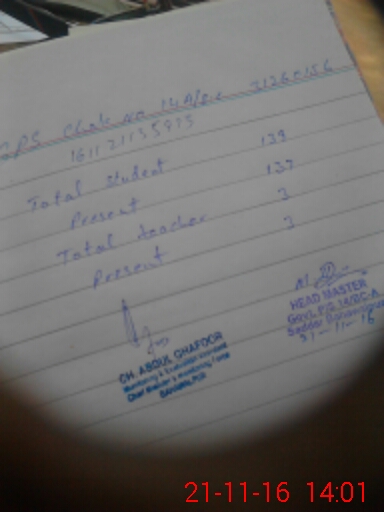 GPS Chak No 14A/BC 31260156
161121135975
Total student 139
Present 137
Total teacher 3
Present 3
HEAD MASTER
Govt. P/S 14/BC-A
21-11-16
CH. ABDUL GHAFOOR
Monitoring & Evaluation Assistant
Chief Minister's Monitoring Force
21-11-16 14:01